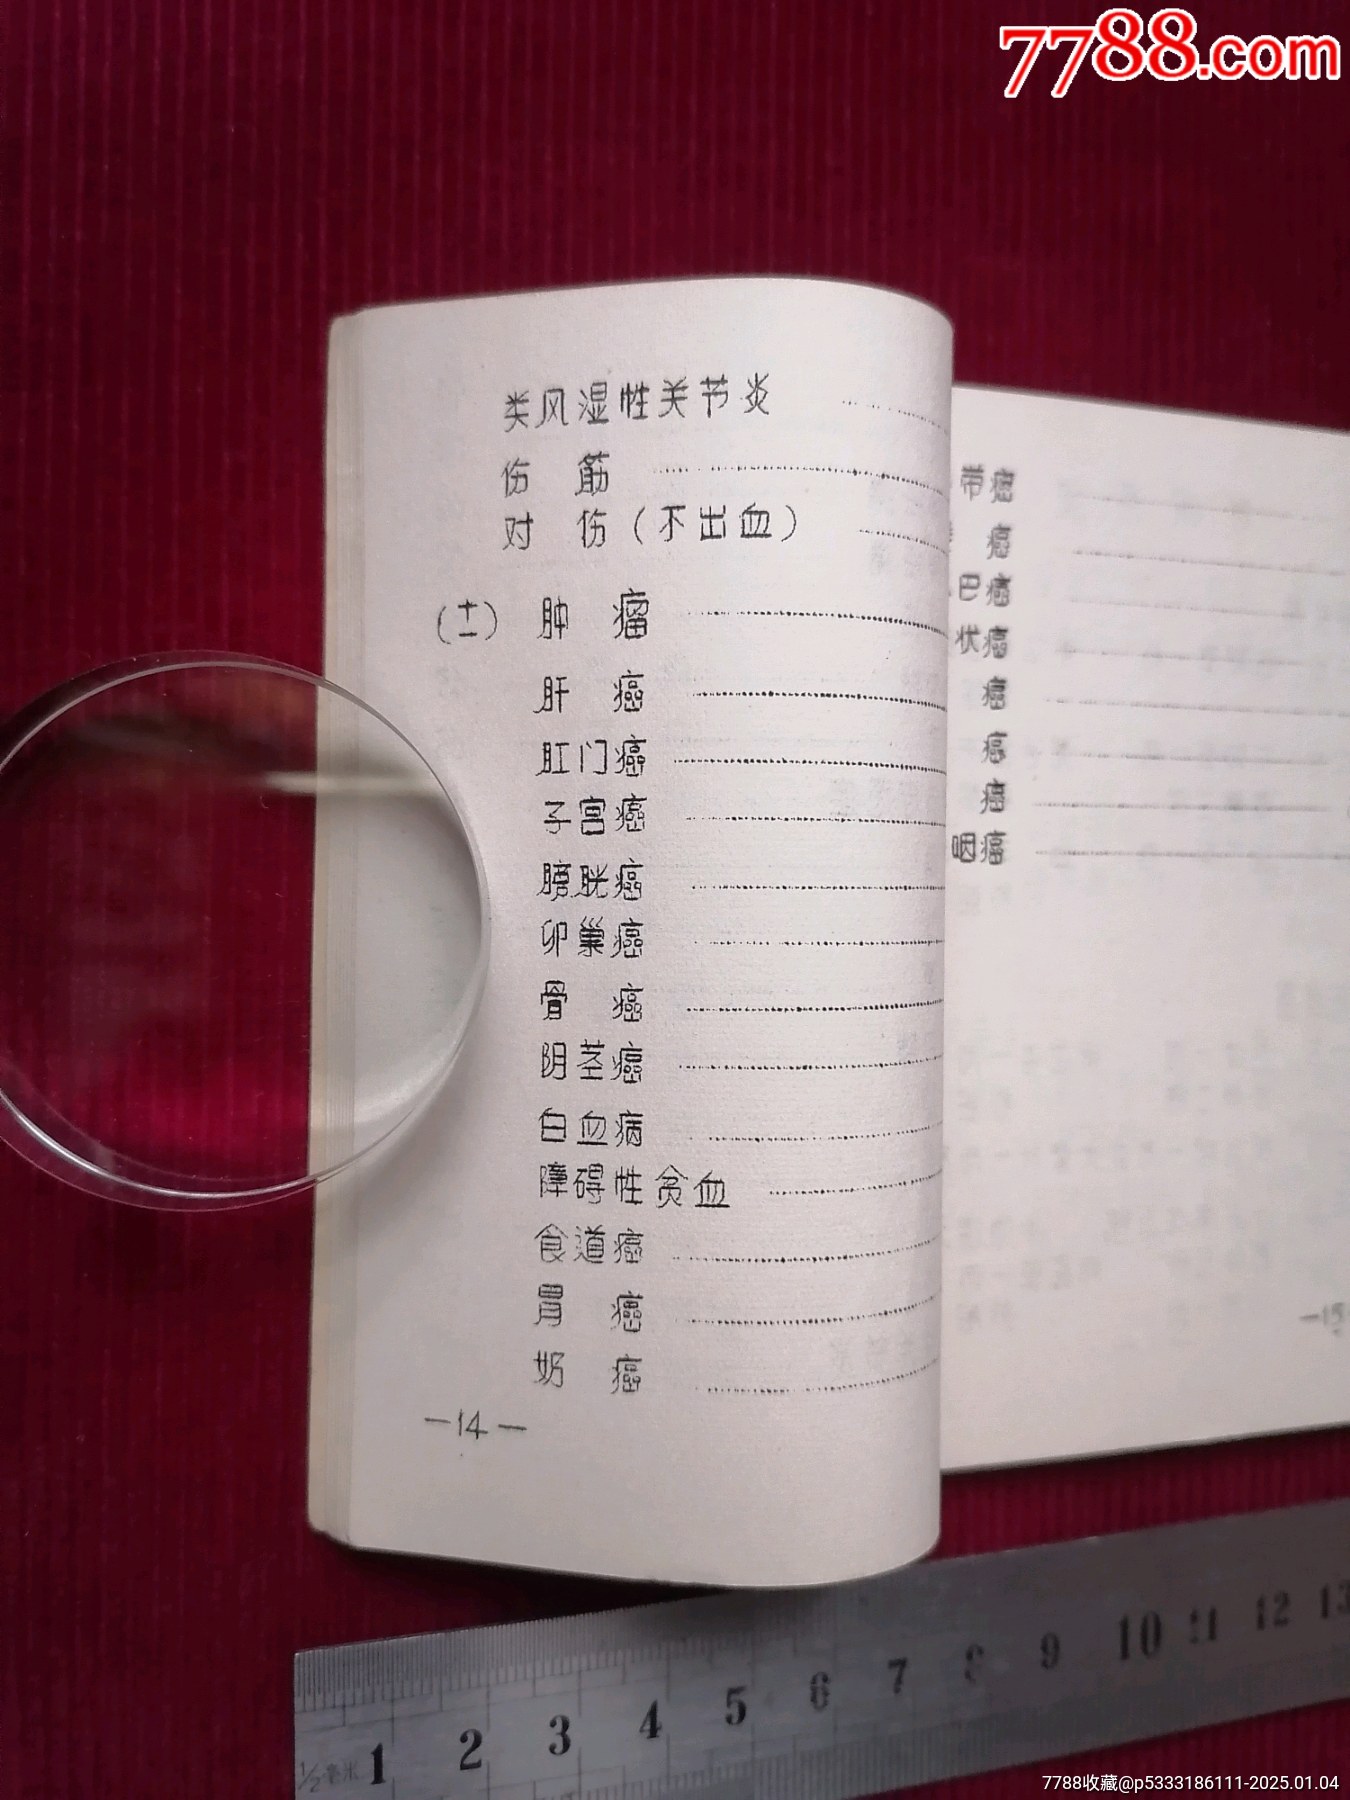 7788.com
类风湿性关节炎
伤 筋
对 伤(不出血)
(十一) 肿 瘤
肝 癌
肛门癌
子宫癌
膀胱癌
卵巢癌
骨 癌
阴茎癌
白血病
障碍性贫血
食道癌
胃 癌
奶 癌
—14—
带癌
癌
巴癌
状癌
癌
癌
癌
咽癌
—15
1 2 3 4 5 6 7 8 9 10 11 12 13
1/2毫米
7788收藏@p5333186111-2025.01.04